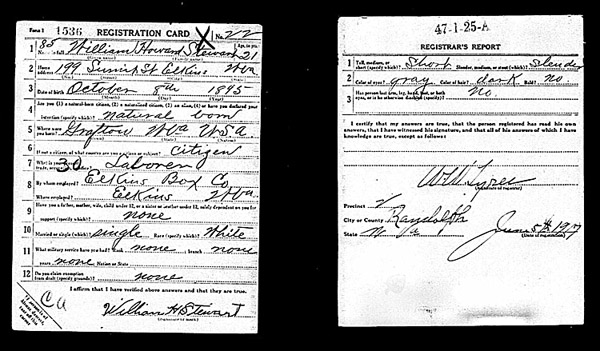 Form 1 1536 REGISTRATION CARD X No. 22
1 Name in full William Howard Stewart Age, in yrs. 21
(Given name) (Family name)
2 Home address 199 Summit St Elkins W Va
3 Date of birth October 8th 1895
4 Are you (1) a natural-born citizen, (2) a naturalized citizen, (3) an alien, (4) or have you declared your
intention (specify which)? natural born
5 Where were you born? Grafton W Va USA
6 If not a citizen, of what country are you a citizen or subject? citizen
7 What is your present trade, occupation, or office? 30 Laborer
8 By whom employed? Elkins Box Co
Where employed? Elkins W Va.
9 Have you a father, mother, wife, child under 12, or a sister or brother under 12, solely dependent on you for
support (specify which)? none
10 Married or single (which)? single Race (specify which)? White
11 What military service have you had? Rank none branch none
years none Nation or State
12 Do you claim exemption from draft (specify grounds)? none
I affirm that I have verified above answers and that they are true.
William H Stewart
47-1-25-A
REGISTRAR'S REPORT
1 Tall, medium, or short (specify which)? Short Slender, medium, or stout (which)? Slender
2 Color of eyes? gray Color of hair? dark Bald? No
3 Has person lost arm, leg, hand, foot, or both
eyes, or is he otherwise disabled (specify)? No.
I certify that my answers are true, that the person registered has read his own
answers, that I have witnessed his signature, and that all of his answers of which I
have knowledge are true, except as follows:
(Signature of registrar)
Precinct 2
City or County Randolph
State W. Va June 5th 1917
(Date of registration)